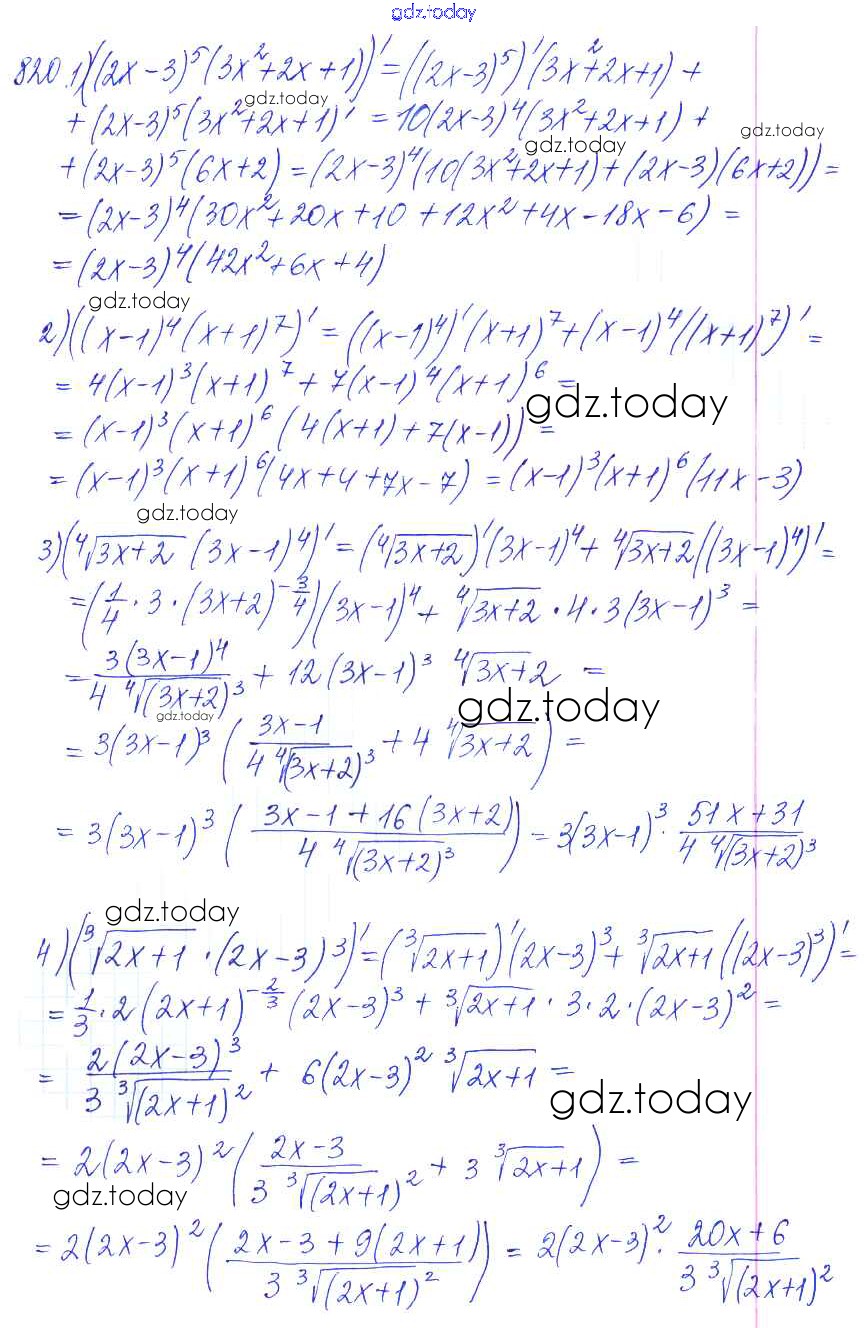 gdz.today
820.1)((2x-3)⁵(3x²+2x+1))' = ((2x-3)⁵)'(3x²+2x+1) +
gdz.today
+(2x-3)⁵(3x²+2x+1)' = 10(2x-3)⁴(3x²+2x+1) +
gdz.today
gdz.today
+(2x-3)⁵(6x+2) = (2x-3)⁴(10(3x²+2x+1)+(2x-3)(6x+2)) =
= (2x-3)⁴(30x²+20x+10+12x²+4x-18x-6) =
= (2x-3)⁴(42x²+6x+4)
gdz.today
2)((x-1)⁴(x+1)⁷)' = ((x-1)⁴)'(x+1)⁷+(x-1)⁴((x+1)⁷)' =
= 4(x-1)³(x+1)⁷ + 7(x-1)⁴(x+1)⁶ =
gdz.today
= (x-1)³(x+1)⁶(4(x+1)+7(x-1)) =
= (x-1)³(x+1)⁶(4x+4+7x-7) = (x-1)³(x+1)⁶(11x-3)
gdz.today
3)(⁴√(3x+2) (3x-1)⁴)' = (⁴√(3x+2))'(3x-1)⁴ + ⁴√(3x+2)((3x-1)⁴)' =
= (1/4 · 3 · (3x+2)^(-3/4))(3x-1)⁴ + ⁴√(3x+2) · 4 · 3(3x-1)³ =
= 3(3x-1)⁴/(4 ⁴√(3x+2)³) + 12(3x-1)³ ⁴√(3x+2) =
gdz.today
gdz.today
= 3(3x-1)³((3x-1)/(4 ⁴√(3x+2)³) + 4 ⁴√(3x+2)) =
= 3(3x-1)³((3x-1+16(3x+2))/(4 ⁴√(3x+2)³)) = 3(3x-1)³ · (51x+31)/(4 ⁴√(3x+2)³)
gdz.today
4)(³√(2x+1) · (2x-3)³)' = (³√(2x+1))'(2x-3)³ + ³√(2x+1)((2x-3)³)' =
= 1/3 · 2(2x+1)^(-2/3)(2x-3)³ + ³√(2x+1) · 3 · 2 · (2x-3)² =
= 2(2x-3)³/(3 ³√(2x+1)²) + 6(2x-3)² ³√(2x+1) =
gdz.today
= 2(2x-3)²((2x-3)/(3 ³√(2x+1)²) + 3 ³√(2x+1)) =
gdz.today
= 2(2x-3)²((2x-3+9(2x+1))/(3 ³√(2x+1)²)) = 2(2x-3)² · (20x+6)/(3 ³√(2x+1)²)